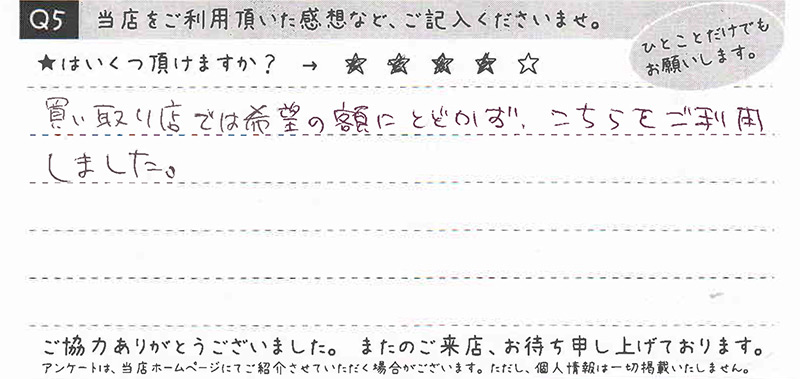 Q5 当店をご利用頂いた感想など、ご記入くださいませ。
ひとことだけでも
お願いします。
★はいくつ頂けますか？ → ★ ★ ★ ★ ☆
買い取り店では希望の額にとどかず、こちらをご利用
しました。
ご協力ありがとうございました。 またのご来店、お待ち申し上げております。
アンケートは、当店ホームページにてご紹介させていただく場合がございます。ただし、個人情報は一切掲載いたしません。